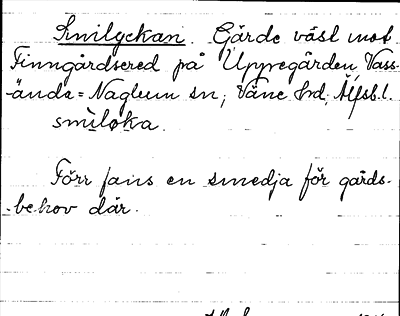 Smilyckan. Gärde väst mot
Finngårdsered på Uppegården, Vass-
-ända-Naglum sn, Väne hd, Älfsb. l.
smìløka.
Förr fans en smedja för gårds-
-behov där.